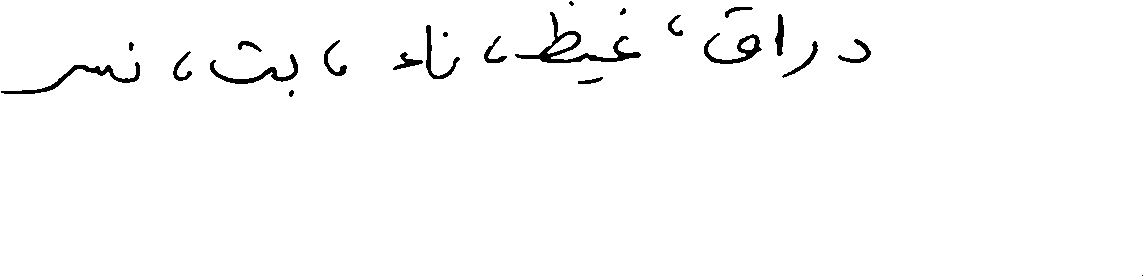 دراق، غيظ، ناء، بت، نسر